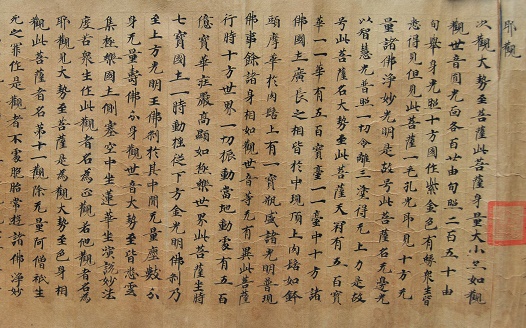 耶觀
次觀大勢至菩薩此菩薩身量大小亦如觀
觀世音圓光面各百廿由旬照二百五十由
旬舉身光照十方國作紫金色有緣衆生皆
悉得見但見此菩薩一毛孔光即見十方无
量諸佛淨妙光明是故号此菩薩名无邊光
以智慧光普照一切令離三塗得无上力是故
号此菩薩名大勢至此菩薩天冠有五百寶
華一一華有五百寶臺一一臺中十方諸
佛國土廣長之相皆於中現頂上肉髻如鉢
頭摩華於肉髻上有一寶瓶盛諸光明普現
佛事餘諸身相如觀世音等无有異此菩薩
行時十方世界一切振動當地動處有五百
億寶華莊嚴高顯如極樂世界此菩薩坐時
七寶國土一時動搖從下方金光明佛剎乃
至上方光明王佛剎於其中間无量塵數分
身无量壽佛分身觀世音大勢至皆悉雲
集極樂國土側塞空中坐蓮華座演說妙法
度苦衆生作此觀者名為正觀若他觀者名為
耶觀見大勢至菩薩是為觀大勢至色身相
觀此菩薩者名第十一觀除无量阿僧祇生
死之罪作是觀者不處胞胎常遊諸佛淨妙